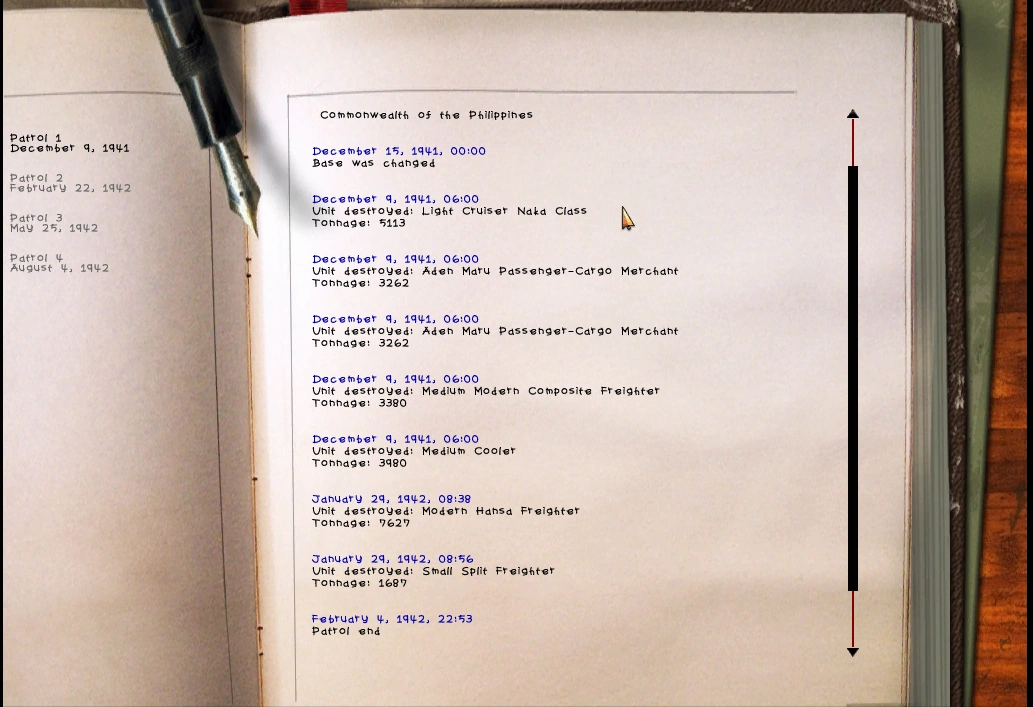 Patrol 1
December 9, 1941
Patrol 2
February 22, 1942
Patrol 3
May 25, 1942
Patrol 4
August 4, 1942
Commonwealth of the Philippines
December 15, 1941, 00:00
Base was changed
December 9, 1941, 06:00
Unit destroyed: Light Cruiser Naka Class
Tonnage: 5113
December 9, 1941, 06:00
Unit destroyed: Aden Maru Passenger-Cargo Merchant
Tonnage: 3262
December 9, 1941, 06:00
Unit destroyed: Aden Maru Passenger-Cargo Merchant
Tonnage: 3262
December 9, 1941, 06:00
Unit destroyed: Medium Modern Composite Freighter
Tonnage: 3380
December 9, 1941, 06:00
Unit destroyed: Medium Cooler
Tonnage: 3980
January 29, 1942, 08:38
Unit destroyed: Modern Hansa Freighter
Tonnage: 7627
January 29, 1942, 08:56
Unit destroyed: Small Split Freighter
Tonnage: 1687
February 4, 1942, 22:53
Patrol end